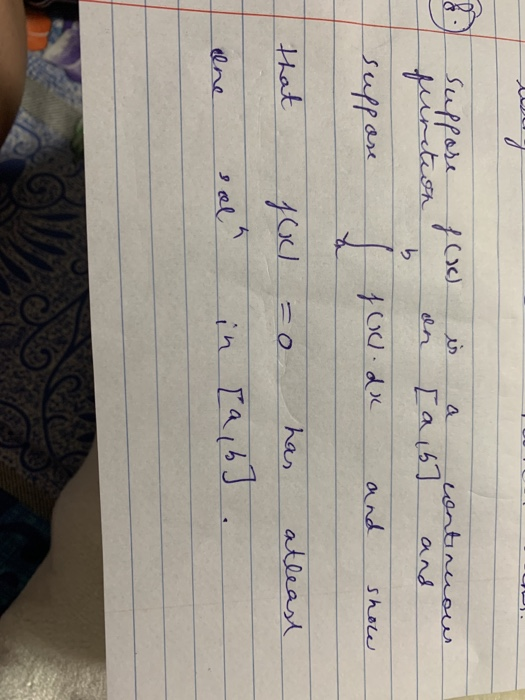 8. Suppose f(x) is a continuous
function on [a,b] and
suppose ∫_a^b f(x).dx and show
that f(x) = 0 has atleast
one solⁿ in [a,b].